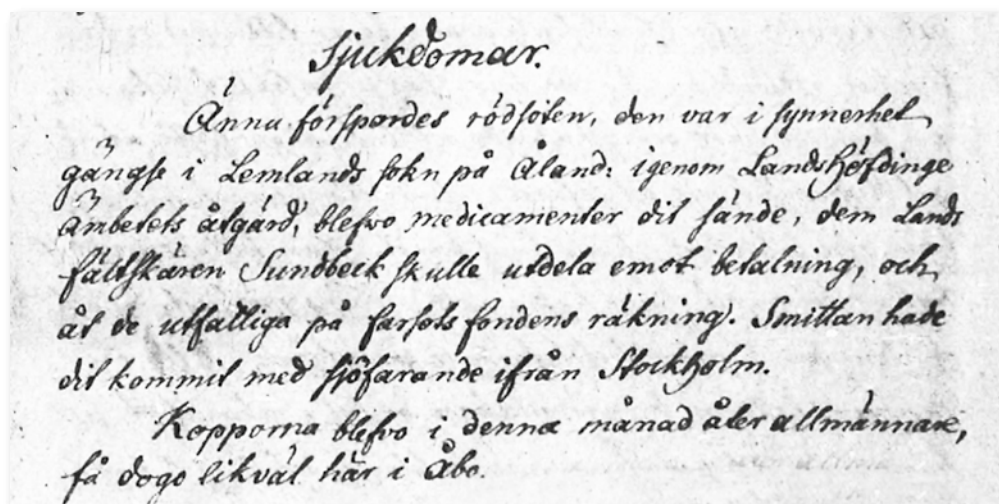 Sjukdomar.
Ännu förspordes rödsoten, den var i synnerhet
gängse i Lemlands sokn på Åland: igenom Landshöfdinge
ämbetets åtgärd, blefvo medicamenter dit sände, dem Lands
fältskären Sundbeck skulle utdela emot betalning, och
åt de utfattiga på farsots fondens räkning. Smittan hade
dit kommit med sjöfarande ifrån Stockholm.
Kopporna blefvo i denna månad åter allmännare,
få dogo likväl här i Åbo.